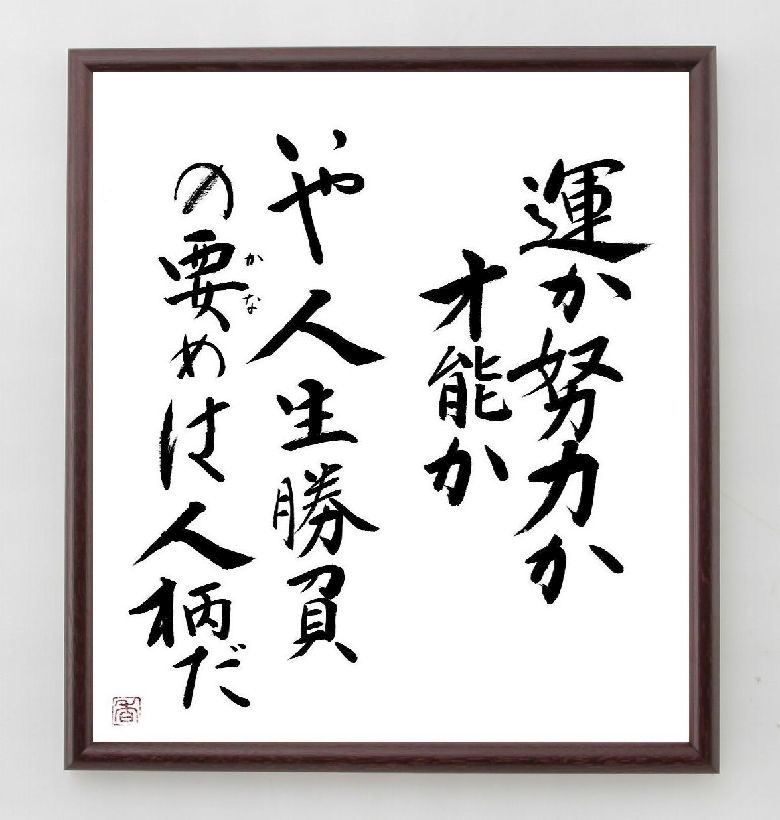 運か努力か
才能か
いや人生勝負
の要めは人柄だ
かな
香